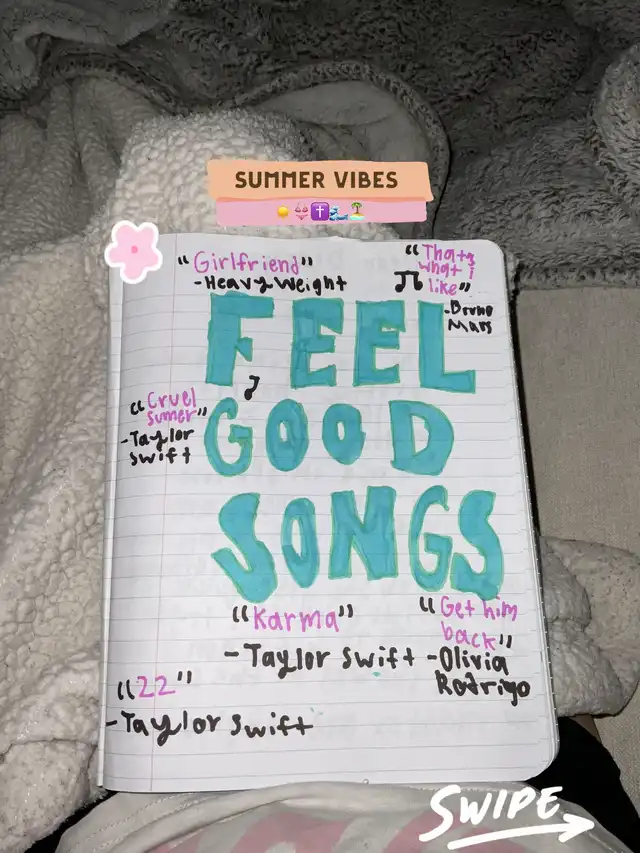 SUMMER VIBES
☀️👙✝️🌊🏝️
"Girlfriend"
-Heavy Weight
"Thats
what i
like"
-Bruno
Mars
FEEL
"Cruel
sumer"
-Taylor
swift
GOOD
SONGS
"Karma"
-Taylor swift
"Get him
back"
-Olivia
Rodrigo
"22"
-Taylor swift
SWIPE